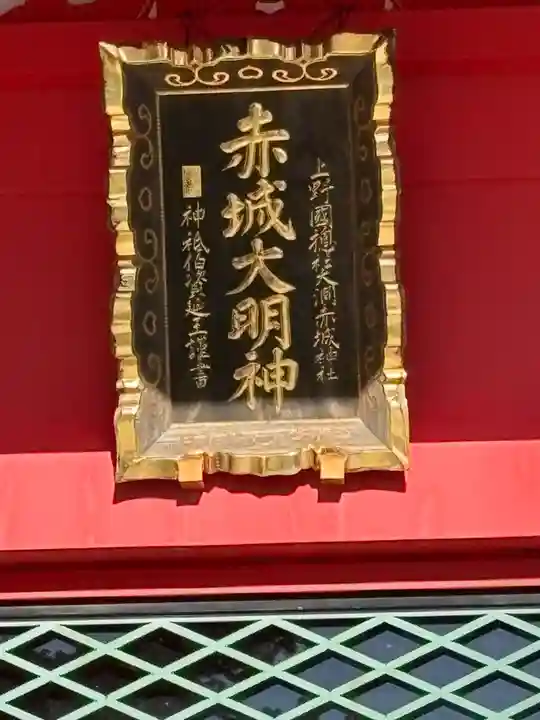 上野國總社大洞赤城神社
赤城大明神
神祇伯資延王謹書